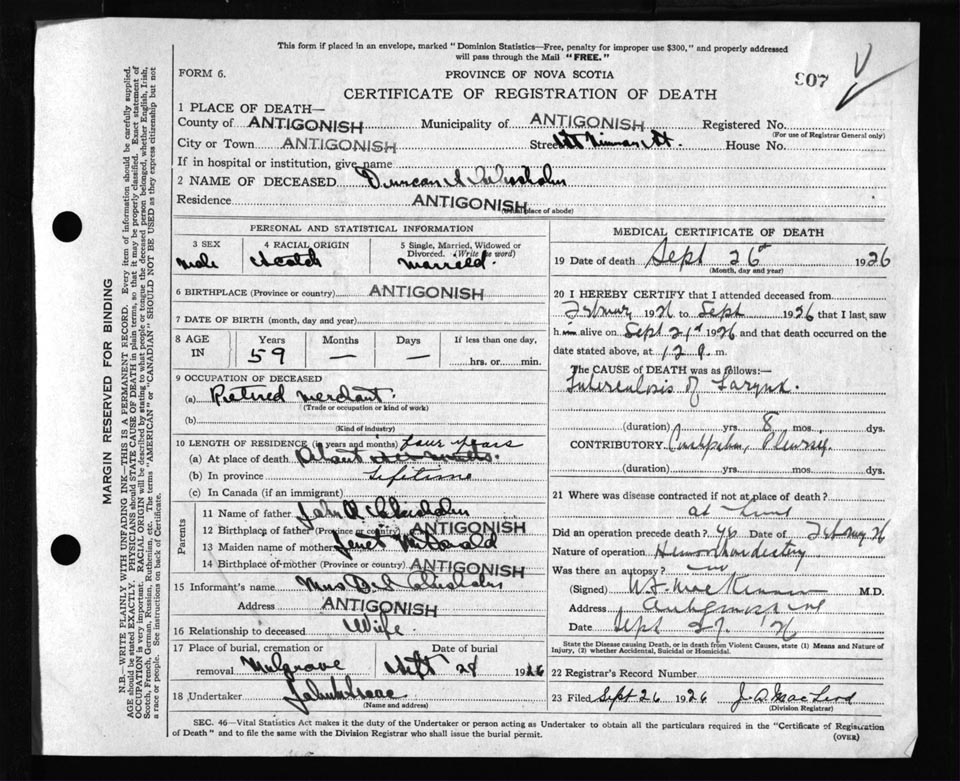 This form if placed in an envelope, marked "Dominion Statistics—Free, penalty for improper use $300," and properly addressed
will pass through the Mail "FREE."
FORM 6.
PROVINCE OF NOVA SCOTIA
907
CERTIFICATE OF REGISTRATION OF DEATH
1 PLACE OF DEATH—
County of ANTIGONISH Municipality of ANTIGONISH Registered No.
(For use of Registrar General only)
City or Town ANTIGONISH Street St Ninian St. House No.
If in hospital or institution, give name
2 NAME OF DECEASED Duncan Chisholm
Residence ANTIGONISH
(Usual place of abode)
PERSONAL AND STATISTICAL INFORMATION
3 SEX 4 RACIAL ORIGIN 5 Single, Married, Widowed or
Divorced. (Write the word)
Male Scotch Married.
6 BIRTHPLACE (Province or country) ANTIGONISH
7 DATE OF BIRTH (month, day and year)
8 AGE IN Years Months Days If less than one day,
59 — — hrs. or min.
9 OCCUPATION OF DECEASED
(a) Retired Merchant.
(Trade or occupation or kind of work)
(b)
(Kind of industry)
10 LENGTH OF RESIDENCE (in years and months) four years
(a) At place of death About
(b) In province Lifetime
(c) In Canada (if an immigrant)
Parents
11 Name of father John Chisholm
12 Birthplace of father (Province or country) ANTIGONISH
13 Maiden name of mother Janet McDonald
14 Birthplace of mother (Province or country) ANTIGONISH
15 Informant's name Mrs D Chisholm
Address ANTIGONISH
16 Relationship to deceased Wife
17 Place of burial, cremation or Date of burial
removal Sept 28 1926
18 Undertaker
(Name and address)
MEDICAL CERTIFICATE OF DEATH
19 Date of death Sept 26th 1926
(Month, day and year)
20 I HEREBY CERTIFY that I attended deceased from
1926 to Sept 1926 that I last saw
him alive on Sept 21st 1926 and that death occurred on the
date stated above, at 12 m.
The CAUSE of DEATH was as follows:—
Tuberculosis of Larynx.
(duration) yrs. 8 mos. dys.
CONTRIBUTORY Pleurisy
(duration) yrs. mos. dys.
21 Where was disease contracted if not at place of death?
at home
Did an operation precede death? Date of 26
Nature of operation
Was there an autopsy? no
(Signed) M.D.
Address Antigonish
Date Sept 27. 26
State the Disease causing Death, or in death from Violent Causes, state (1) Means and Nature of
Injury, (2) whether Accidental, Suicidal or Homicidal.
22 Registrar's Record Number
23 Filed Sept 26 1926 J. A. MacLeod
(Division Registrar)
SEC. 46—Vital Statistics Act makes it the duty of the Undertaker or person acting as Undertaker to obtain all the particulars required in the "Certificate of Registration
of Death" and to file the same with the Division Registrar who shall issue the burial permit.
(OVER)
MARGIN RESERVED FOR BINDING
N.B.—WRITE PLAINLY WITH UNFADING INK—THIS IS A PERMANENT RECORD. Every item of information should be carefully supplied.
AGE should be stated EXACTLY. PHYSICIANS should STATE CAUSE OF DEATH in plain terms, so that it may be properly classified. Exact statement of
OCCUPATION is very important. RACIAL ORIGIN will be described by stating to what people or tongue the deceased person belonged, whether English, Irish,
Scotch, French, German, Russian, Ruthenian, etc. The terms "AMERICAN" or "CANADIAN" SHOULD NOT BE USED as they express citizenship but not
a race or people. See instructions on back of Certificate.